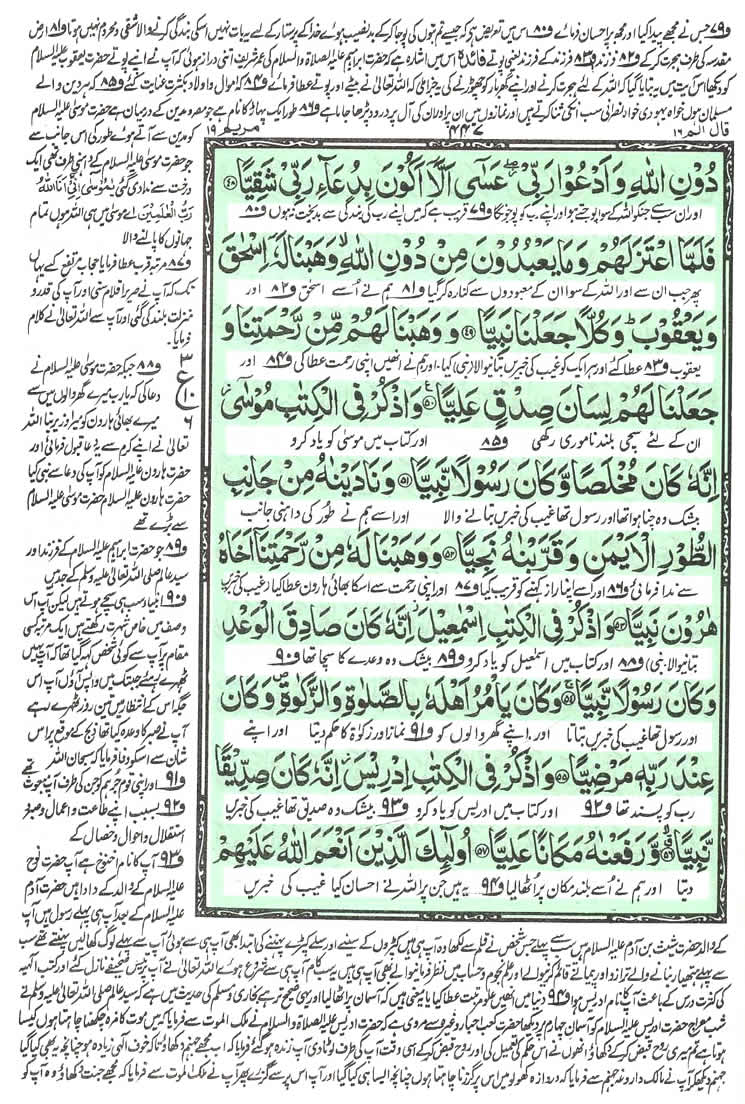 و۷۹ جس نے مجھے پیدا کیا اور مجھ پر احسان فرمائے و۸۰ اس میں تعریض ہے کہ جیسے تم بتوں کی پوجا کر کے بدنصیب ہوئے خدا کے پرستار کے لیے یہ بات نہیں اسکی بندگی کرنے والا شقی و محروم نہیں ہوتا و۸۱ ارض
مقدسہ کی طرف ہجرت کر کے و۸۲ فرزند و۸۳ فرزند کے فرزند یعنی پوتے فائدہ اس میں اشارہ ہے کہ حضرت ابراہیم علیہ الصلاۃ والسلام کی عمر شریف اتنی دراز ہوئی کہ آپ نے اپنے پوتے حضرت یعقوب علیہ السلام
کو دیکھا اس آیت میں یہ بتایا گیا کہ اللہ کے لئے ہجرت کرنے اور اپنے گھر بار کو چھوڑنے کی یہ جزا ملی کہ اللہ تعالیٰ نے بیٹے اور پوتے عطا فرمائے و۸۴ کہ اموال و اولاد بکثرت عنایت کئے و۸۵ کہ ہر دین والے
مسلمان ہوں خواہ یہودی خواہ نصرانی سب انکی ثنا کرتے ہیں اور نمازوں میں ان پر اور ان کی آل پر درود پڑھا جاتا ہے و۸۶ طور ایک پہاڑ کا نام ہے جو مصر و مدین کے درمیان ہے حضرت موسیٰ علیہ السلام
قال الم ۱۶
۴۴۷
مریم ۱۹
دُوۡنِ اللّٰہِ وَ اَدۡعُوۡا رَبِّیۡ ۫ۖ عَسٰۤی اَلَّاۤ اَکُوۡنَ بِدُعَآءِ رَبِّیۡ شَقِیًّا ﴿۴۸﴾
اور ان سب سے جنکو اللہ کے سوا پوجتے ہو اور اپنے رب کو پوجوں گا و۷۹ قریب ہے کہ میں اپنے رب کی بندگی سے بدبخت نہ ہوں و۸۰
فَلَمَّا اعۡتَزَلَہُمۡ وَ مَا یَعۡبُدُوۡنَ مِنۡ دُوۡنِ اللّٰہِ ۙ وَہَبۡنَا لَہٗۤ اِسۡحٰقَ
پھر جب ان سے اور اللہ کے سوا ان کے معبودوں سے کنارہ کر گیا و۸۱ ہم نے اُسے اسحٰق و۸۲ اور
وَ یَعۡقُوۡبَ ؕ وَ کُلًّا جَعَلۡنَا نَبِیًّا ﴿۴۹﴾ وَ وَہَبۡنَا لَہُمۡ مِّنۡ رَّحۡمَتِنَا وَ
یعقوب و۸۳ عطا کئے اور ہر ایک کو غیب کی خبریں بتانیوالا (نبی) کیا۔ اور ہم نے انھیں اپنی رحمت عطا کی و۸۴ اور
جَعَلۡنَا لَہُمۡ لِسَانَ صِدۡقٍ عَلِیًّا ﴿۵۰﴾ وَ اذۡکُرۡ فِی الۡکِتٰبِ مُوۡسٰۤی ۫
ان کے لئے سچی بلند ناموری رکھی و۸۵ اور کتاب میں موسیٰ کو یاد کرو
اِنَّہٗ کَانَ مُخۡلَصًا وَّ کَانَ رَسُوۡلًا نَّبِیًّا ﴿۵۱﴾ وَ نَادَیۡنٰہُ مِنۡ جَانِبِ
بیشک وہ چنا ہوا تھا اور رسول تھا غیب کی خبریں بتانے والا اور اسے ہم نے طور کی داہنی جانب
الطُّوۡرِ الۡاَیۡمَنِ وَ قَرَّبۡنٰہُ نَجِیًّا ﴿۵۲﴾ وَ وَہَبۡنَا لَہٗ مِنۡ رَّحۡمَتِنَاۤ اَخَاہُ
سے ندا فرمائی و۸۶ اور اسے اپنا راز کہنے کو قریب کیا و۸۷ اور اپنی رحمت سے اسکا بھائی ہارون عطا کیا (غیب کی خبریں
ہٰرُوۡنَ نَبِیًّا ﴿۵۳﴾ وَ اذۡکُرۡ فِی الۡکِتٰبِ اِسۡمٰعِیۡلَ ۫ اِنَّہٗ کَانَ صَادِقَ الۡوَعۡدِ
بتانیوالا نبی) و۸۸ اور کتاب میں اسمٰعیل کو یاد کرو و۸۹ بیشک وہ وعدے کا سچا تھا و۹۰
وَ کَانَ رَسُوۡلًا نَّبِیًّا ﴿۵۴﴾ وَ کَانَ یَاۡمُرُ اَہۡلَہٗ بِالصَّلٰوۃِ وَ الزَّکٰوۃِ ۪ وَ کَانَ
اور رسول تھا غیب کی خبریں بتاتا اور اپنے گھر والوں کو و۹۱ نماز اور زکوٰۃ کا حکم دیتا اور اپنے
عِنۡدَ رَبِّہٖ مَرۡضِیًّا ﴿۵۵﴾ وَ اذۡکُرۡ فِی الۡکِتٰبِ اِدۡرِیۡسَ ۫ اِنَّہٗ کَانَ صِدِّیۡقًا
رب کو پسند تھا و۹۲ اور کتاب میں ادریس کو یاد کرو و۹۳ بیشک وہ صدیق تھا غیب کی خبریں
نَّبِیًّا ﴿۵۶﴾ وَّ رَفَعۡنٰہُ مَکَانًا عَلِیًّا ﴿۵۷﴾ اُولٰٓئِکَ الَّذِیۡنَ اَنۡعَمَ اللّٰہُ عَلَیۡہِمۡ
دیتا اور ہم نے اُسے بلند مکان پر اٹھا لیا و۹۴ یہ ہیں جن پر اللہ نے احسان کیا غیب کی خبریں
کو مدین سے آتے ہوئے طور کی اس جانب سے
جو حضرت موسیٰ علیہ السلام کے داہنی طرف تھی ایک
درخت سے ندا دی گئی یٰمُوۡسٰۤی اِنِّیۡۤ اَنَا اللّٰہُ
رَبُّ الۡعٰلَمِیۡنَ اے موسیٰ میں ہی اللہ ہوں تمام
جہانوں کا پالنے والا
و۸۷ مرتبۂ قرب عطا فرمایا حجاب مرتفع کئے یہاں
تک کہ آپ نے صریر اقلام سنی اور آپ کی قدر و
منزلت بلند کی گئی اور آپ سے اللہ تعالیٰ نے کلام
فرمایا۔
۳
ع
۱۰
۶
و۸۸ جبکہ حضرت موسیٰ علیہ السلام نے
دعا کی کہ یا رب میرے گھر والوں میں سے
میرے بھائی ہارون کو میرا وزیر بنا اللہ
تعالیٰ نے اپنے کرم سے یہ دعا قبول فرمائی اور
حضرت ہارون علیہ السلام کو آپ کی دعا سے نبی کیا
حضرت ہارون علیہ السلام حضرت موسیٰ علیہ السلام
سے بڑے تھے
و۸۹ جو حضرت ابراہیم علیہ السلام کے فرزند اور
سید عالم صلی اللہ تعالیٰ علیہ وسلم کے جد ہیں
و۹۰ انبیاء سب ہی سچے ہوتے ہیں لیکن آپ اس
وصف میں خاص شہرت رکھتے ہیں ایک مرتبہ کسی
مقام پر آپ سے کوئی شخص کہہ گیا تھا کہ آپ یہیں
ٹھہرے رہئے جب تک میں واپس آؤں آپ اس
جگہ اس کے انتظار میں تین روز ٹھہرے رہے
آپ نے صبر کا وعدہ کیا تھا ذبح کے موقع پر اس
شان سے اسکو وفا فرمایا کہ سبحان اللہ
و۹۱ اور اپنی قوم جرہم کو جن کی طرف آپ مبعوث تھے
و۹۲ بسبب اپنے طاعت و اعمال و صبر و
استقلال و احوال و خصال کے
و۹۳ آپ کا نام اخنوخ ہے آپ حضرت نوح
علیہ السلام کے والد کے دادا ہیں حضرت آدم
علیہ السلام کے بعد آپ ہی پہلے رسول ہیں آپ
کے والد حضرت شیث بن آدم علیہ السلام ہیں سب سے پہلے جس شخص نے قلم سے لکھا وہ آپ ہی ہیں کپڑوں کے سینے اور سلے کپڑے پہننے کی ابتدا بھی آپ ہی سے ہوئی آپ سے پہلے لوگ کھالیں پہنتے تھے سب
سے پہلے ہتھیار بنانے والے ترازو اور پیمانے قائم کرنیوالے اور علم نجوم و حساب میں نظر فرمانیوالے بھی آپ ہی ہیں یہ سب کام آپ ہی سے شروع ہوئے اللہ تعالیٰ نے آپ پر تیس صحیفے نازل کئے اور کتب الٰہیہ
کی کثرت درس کے باعث آپ کا نام ادریس ہوا و۹۴ دنیا میں انھیں علو مرتبت عطا کیا یا یہ معنی ہیں کہ آسمان پر اٹھا لیا اور یہی صحیح تر ہے بخاری و مسلم کی حدیث میں ہے کہ سید عالم صلی اللہ تعالیٰ علیہ وسلم نے
شب معراج حضرت ادریس علیہ السلام کو آسمان چہارم پر دیکھا حضرت کعب احبار وغیرہ سے مروی ہے کہ حضرت ادریس علیہ الصلاۃ والسلام نے ملک الموت سے فرمایا کہ میں موت کا مزہ چکھنا چاہتا ہوں کیسا
ہوتا ہے تم میری روح قبض کر کے دکھاؤ انھوں نے اس حکم کی تعمیل کی اور روح قبض کر کے اسی وقت آپ کی طرف لوٹا دی آپ زندہ ہو گئے فرمایا کہ اب مجھے جہنم دکھاؤ تاکہ خوف الٰہی زیادہ ہو چنانچہ یہ بھی کیا گیا
جہنم دیکھکر آپ نے مالک داروغۂ جہنم سے فرمایا کہ دروازہ کھولو میں اس پر گزرنا چاہتا ہوں چنانچہ ایسا ہی کیا گیا اور آپ اس پر سے گزرے پھر آپ نے ملک الموت سے فرمایا کہ مجھے جنت دکھاؤ وہ آپ کو